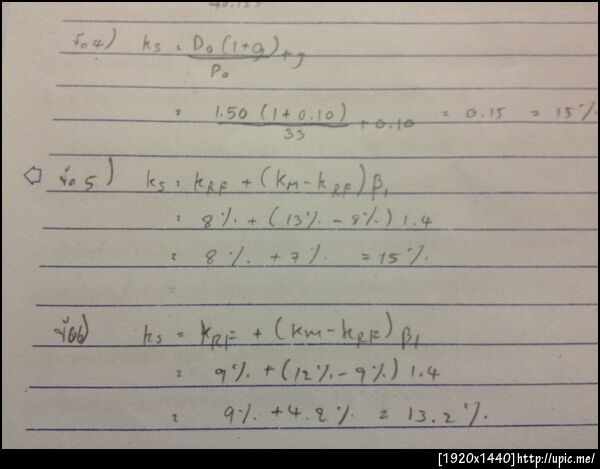 ข้อ 4) ks = D0 (1+g) + g
P0
= 1.50 (1+0.10) + 0.10 = 0.15 = 15%
33
ข้อ 5) ks = kRF + (kM - kRF) β1
= 8% + (13% - 8%) 1.4
= 8% + 7% = 15%
ข้อ 6) ks = kRF + (kM - kRF) β1
= 9% + (12% - 9%) 1.4
= 9% + 4.2% = 13.2%
[1920x1440]http://upic.me/